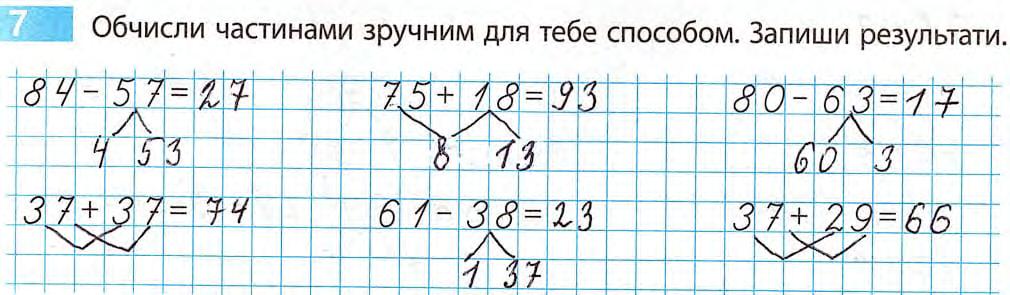 7 Обчисли частинами зручним для тебе способом. Запиши результати.
84-57=27 75+18=93 80-63=17
4 53 8 13 60 3
37+37=74 61-38=23 37+29=66
1 37